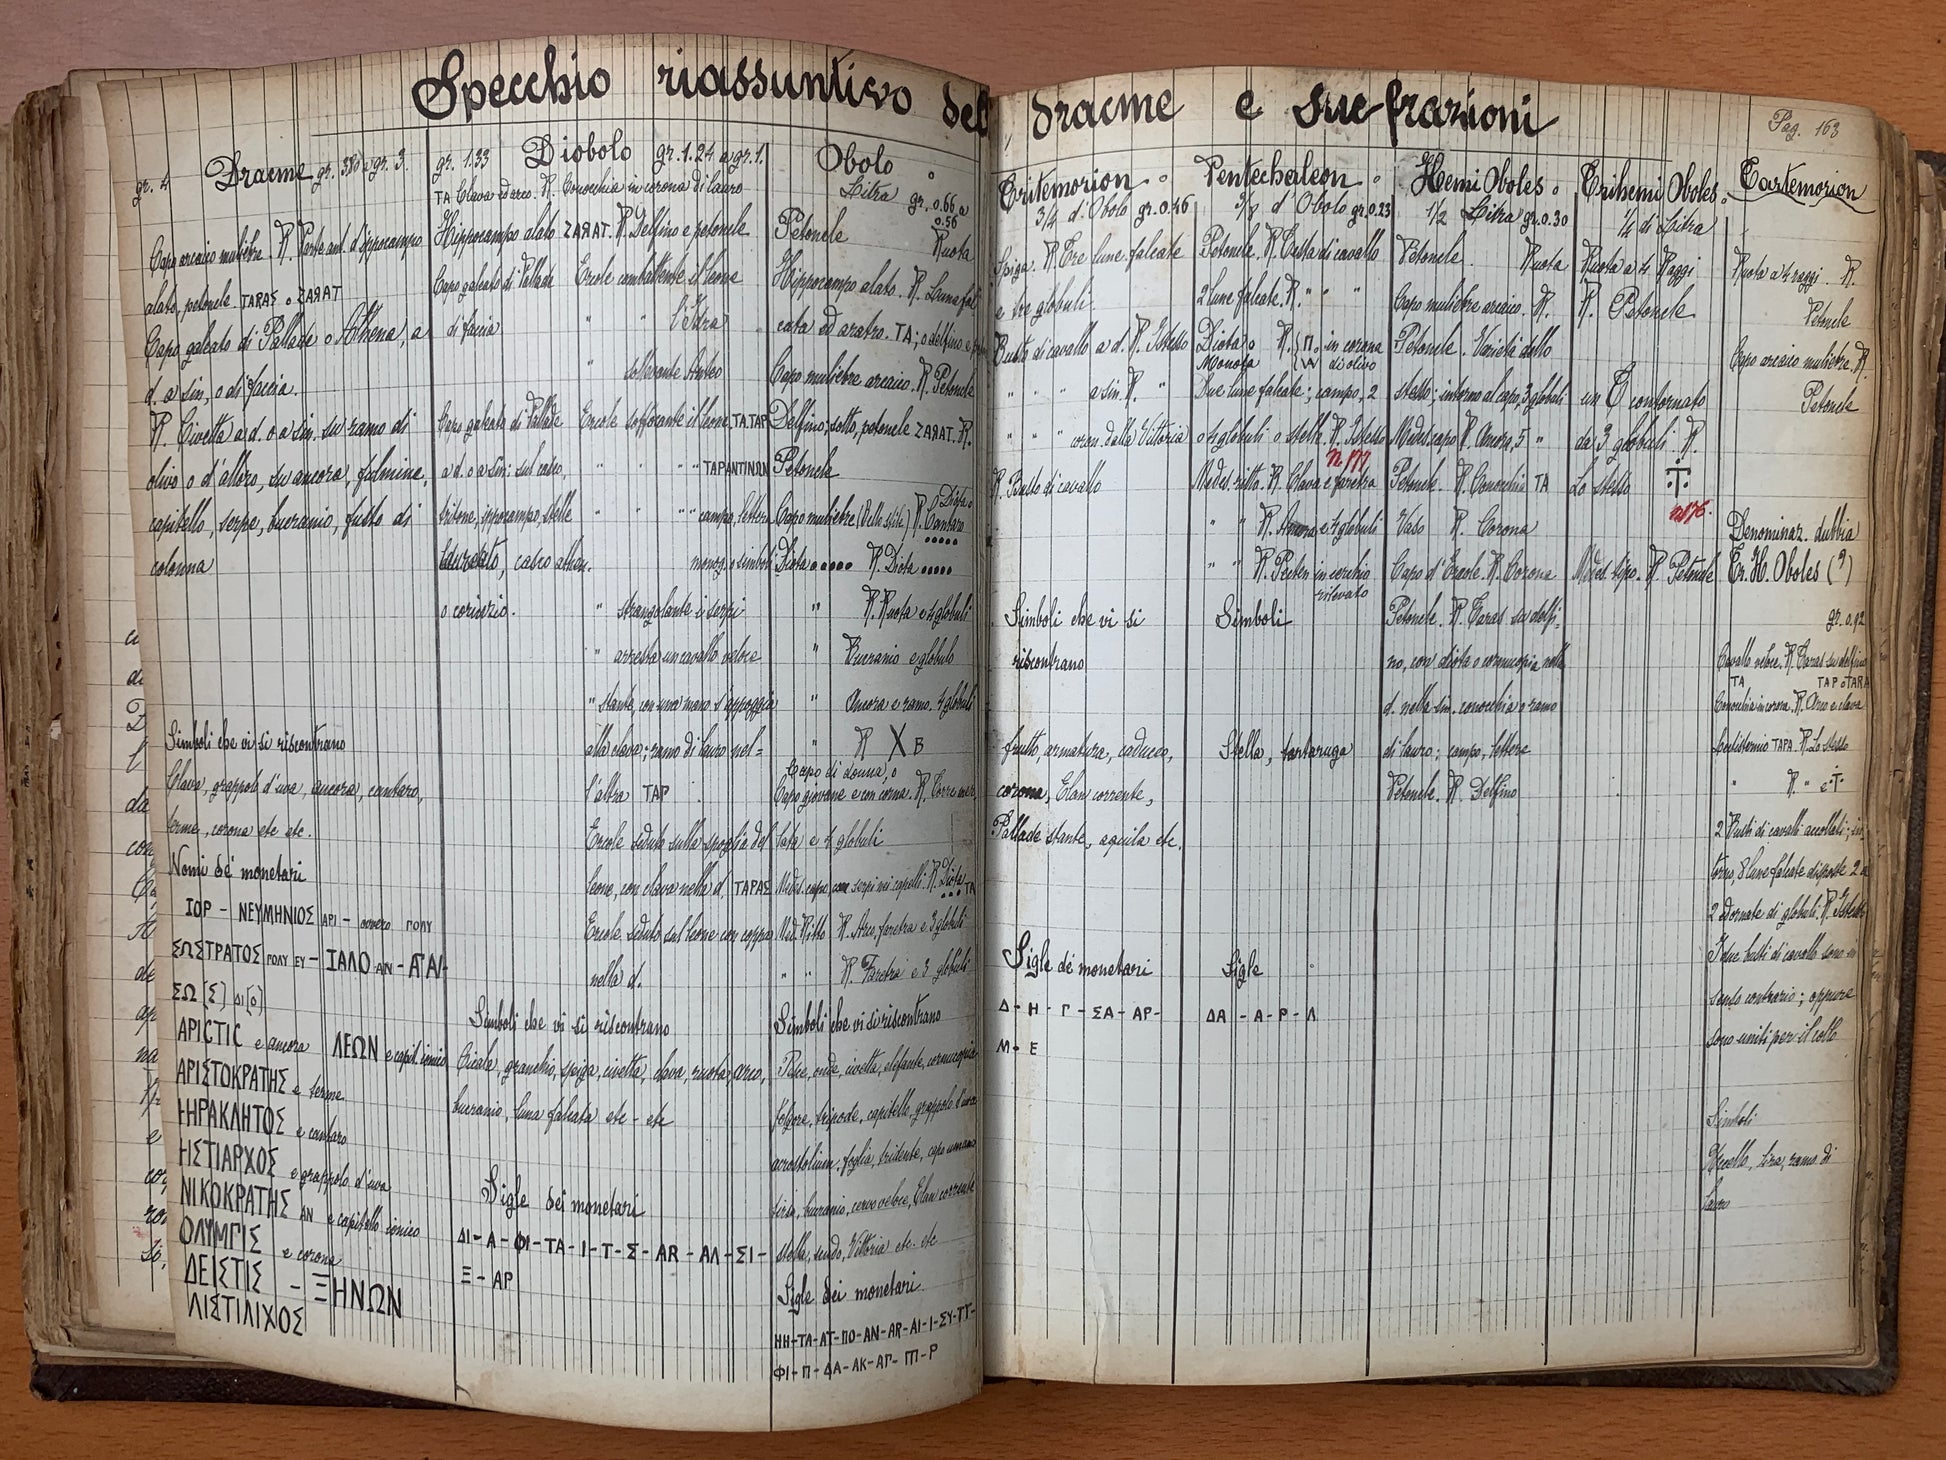 Specchio riassuntivo del dracme e sue frazioni
Pag. 163
gr. 4 Dracme gr. 380 a gr. 3.
Capo arcaico muliebre. R. Parte ant. d'ippocampo
alato, petoncle. TARAS o ZARAT
Capo galeato di Pallade o Athena, a
d. a sin, o di faccia.
R. Civetta a d. o a sin. su ramo di
olivo o d'alloro, su ancora, fulmine,
capitello, serpe, bucranio, fusto di
colonna
Simboli che vi si riscontrano
Clava, grappolo d'uva, ancora, cantaro,
terme, corona etc etc.
Nomi dei monetari
ΙΟΡ - ΝΕΥΜΗΝΙΟΣ ΑΡΙ - ovvero ΠΟΛΥ
ΣΩΣΤΡΑΤΟΣ ΠΟΛΥ ΕΥ - ΙΑΛΟ ΑΝ -
ΣΩ [Σ] ΔΙ[Ο]
ΑΡΙCΤΙC e ancora ΛΕΩΝ e capit. ionico
ΑΡΙΣΤΟΚΡΑΤΗΣ e terme
ͰΗΡΑΚΛΗΤΟΣ e cantaro
ͰΙΣΤΙΑΡΧΟΣ e grappolo d'uva
ΝΙΚΟΚΡΑΤΗΣ ΑΝ e capitello ionico
ΟΛΥΜΠΙΣ e corona
ΔΕΙΣΤΙΣ - ΞΗΝΩΝ
ΛΙΣΤΙΛΙΧΟΣ
gr. 1.33 Diobolo gr. 1.24 a gr. 1.
TA Clava ed arco. R. Conocchia in corona di lauro
Hippocampo alato ZARAT. R. Delfino e petoncle
Capo galeato di Pallade Ercole combattente il leone
di faccia " " l'Idra
" sollevante Anteo
Capo galeato di Pallade Ercole soffocante il leone, TA.TAP
a d. o a sin: sul casco, " " " TAPANTINΩN
tritone, ippocampo, stelle " " " campo, lettere
laureato, casco aten. monog. o simboli
o corinzio. " strangolante i serpi
" arresta un cavallo veloce
" stante, con una mano s'appoggia
alla clava; ramo di lauro nel=
l'altra TAP
Ercole seduto sulla spoglia del
leone, con clava nella d. TAPAΣ
Ercole seduto sul leone con coppa
nella d.
Simboli che vi si riscontrano
Cicale, granchio, spiga, civetta, clava, ruota, arco,
bucranio, luna falcata etc - etc
Sigle dei monetari
ΔΙ - Α - ΦΙ - ΤΑ - Ι - Τ - Σ - AR - ΑΛ - ΣΙ -
Ξ - ΑΡ
Obolo
Litra gr. 0.66 a 0.56
Petoncle Ruota
Hippocampo alato. R. Luna fal
cata ed aratro. TA; o delfino e
Capo muliebre arcaico. R. Petoncle
Delfino; sotto, petoncle ZARAT. R.
Petoncle
Capo muliebre (Bello stile) R. Diota o Cantaro
Diota ..... R. Diota .....
" R. Ruota e 4 globuli
" Bucranio e globulo
" Ancora e ramo. 4 globuli
" R X B
Capo di donna, o
Capo giovane e con corna. R. Torre mer
lata e 4 globuli
Med. capo, con serpi nei capelli. R. Diota TA
Med. Ritto R. Arco, faretra e 3 globuli
" " R. Faretra e 3 globuli
Simboli che vi si riscontrano
Pesce, onde, civetta, elefante, cornucopia
folgore, tripode, capitello, grappolo d'uva
acrostolium, foglia, tridente, capo umano
tirso, bucranio, cervo veloce, Elan corrente
stella, scudo, Vittoria etc. etc
Sigle dei monetari
ΗΗ-ΤΑ-ΑΤ-ΠΟ-ΑΝ-AR-ΑΙ-Ι-ΣΥ-ΤΤ-
ΦΙ-Π-ΔΑ-ΑΚ-ΑΓ-ΠΠ-Ρ
Tritemorion
3/4 d'Obolo gr. 0.46
Spiga. R. Tre lune falcate
e tre globuli.
Busto di cavallo a d. R. Istesso
" " " a sin. R. "
" " " coron. dalla Vittoria
R. Busto di cavallo
Simboli che vi si
riscontrano
frutto, armatura, caduceo,
corona, Elan corrente,
Pallade stante, aquila etc.
Sigle dei monetari
Δ - Η - Γ - ΣΑ - ΑΡ -
Μ - Ε
Pentechalcon
3/8 d'Obolo gr. 0.23
Petoncle. R. Testa di cavallo
2 lune falcate. R. " " "
Diota o Monota R. {Π. W in corona di olivo
Due lune falcate; campo, 2
o 4 globuli o stelle. R. Istesso
n. 177
Medes. ritto. R. Clava e faretra
" " R. Ancora e 4 globuli
" " R. Pecten in cerchio
rilevato
Simboli
Stella, tartaruga
Sigle
ΔΑ - Α - Ρ - Λ
Hemi Oboles
1/2 Litra gr. 0.30
Petoncle. Ruota
Capo muliebre arcaico. R.
Petoncle. Varietà dello
stesso; intorno al capo, 3 globuli
Medes. capo R. Ancora, 5 "
Petoncle. R. Conocchia TA
Vaso R. Corona
Capo d'Ercole. R. Corona
Petoncle. R. Taras su delfi-
no, con diota o cornucopia nella
d. nella sin. conocchia o ramo
di lauro; campo, lettere
Petoncle. R. Delfino
Trihemi Oboles
1/4 di Litra
Ruota a 4 Raggi
R. Petoncle
un T contornato
da 3 globuli R.
Lo stesso T
n. 176.
Medes. tipo. R. Petoncle
Tartemorion
Ruota a 4 raggi. R.
Petoncle
Capo arcaico muliebre. R.
Petoncle
Denominaz. dubbia
Tr. H. Oboles (?)
gr. 0.92
Cavallo veloce. R. Taras su delfino
TA TAP o TARA
Conocchia in corona. R. Arco e clava
TAPA. R. Lo stesso
" R. " e T
2 Busti di cavalli accollati; in-
torno, 8 lune falcate disposte 2 a
2 ed ornate di globuli. R. Istesso
I due busti di cavallo sono in
senso contrario; oppure
sono uniti per il collo
Simboli
Uccello, lira, ramo di
lauro